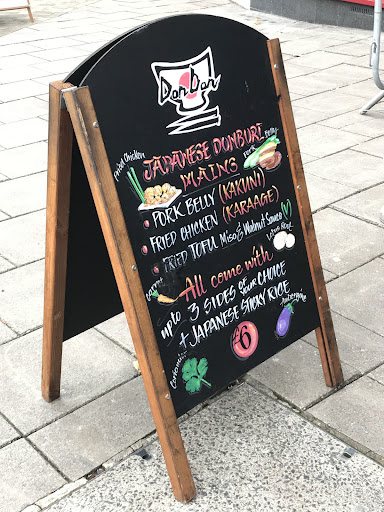 Don Don
JAPANESE DONBURI
MAINS
Fried Chicken
Pork Belly
• PORK BELLY (KAKUNI)
• FRIED CHICKEN (KARAAGE)
• FRIED TOFU, Miso & Walnut Sauce
Lotus Root
Carrot
All come with
upto 3 SIDES OF YOUR CHOICE
+ JAPANESE STICKY RICE
Aubergine
£6